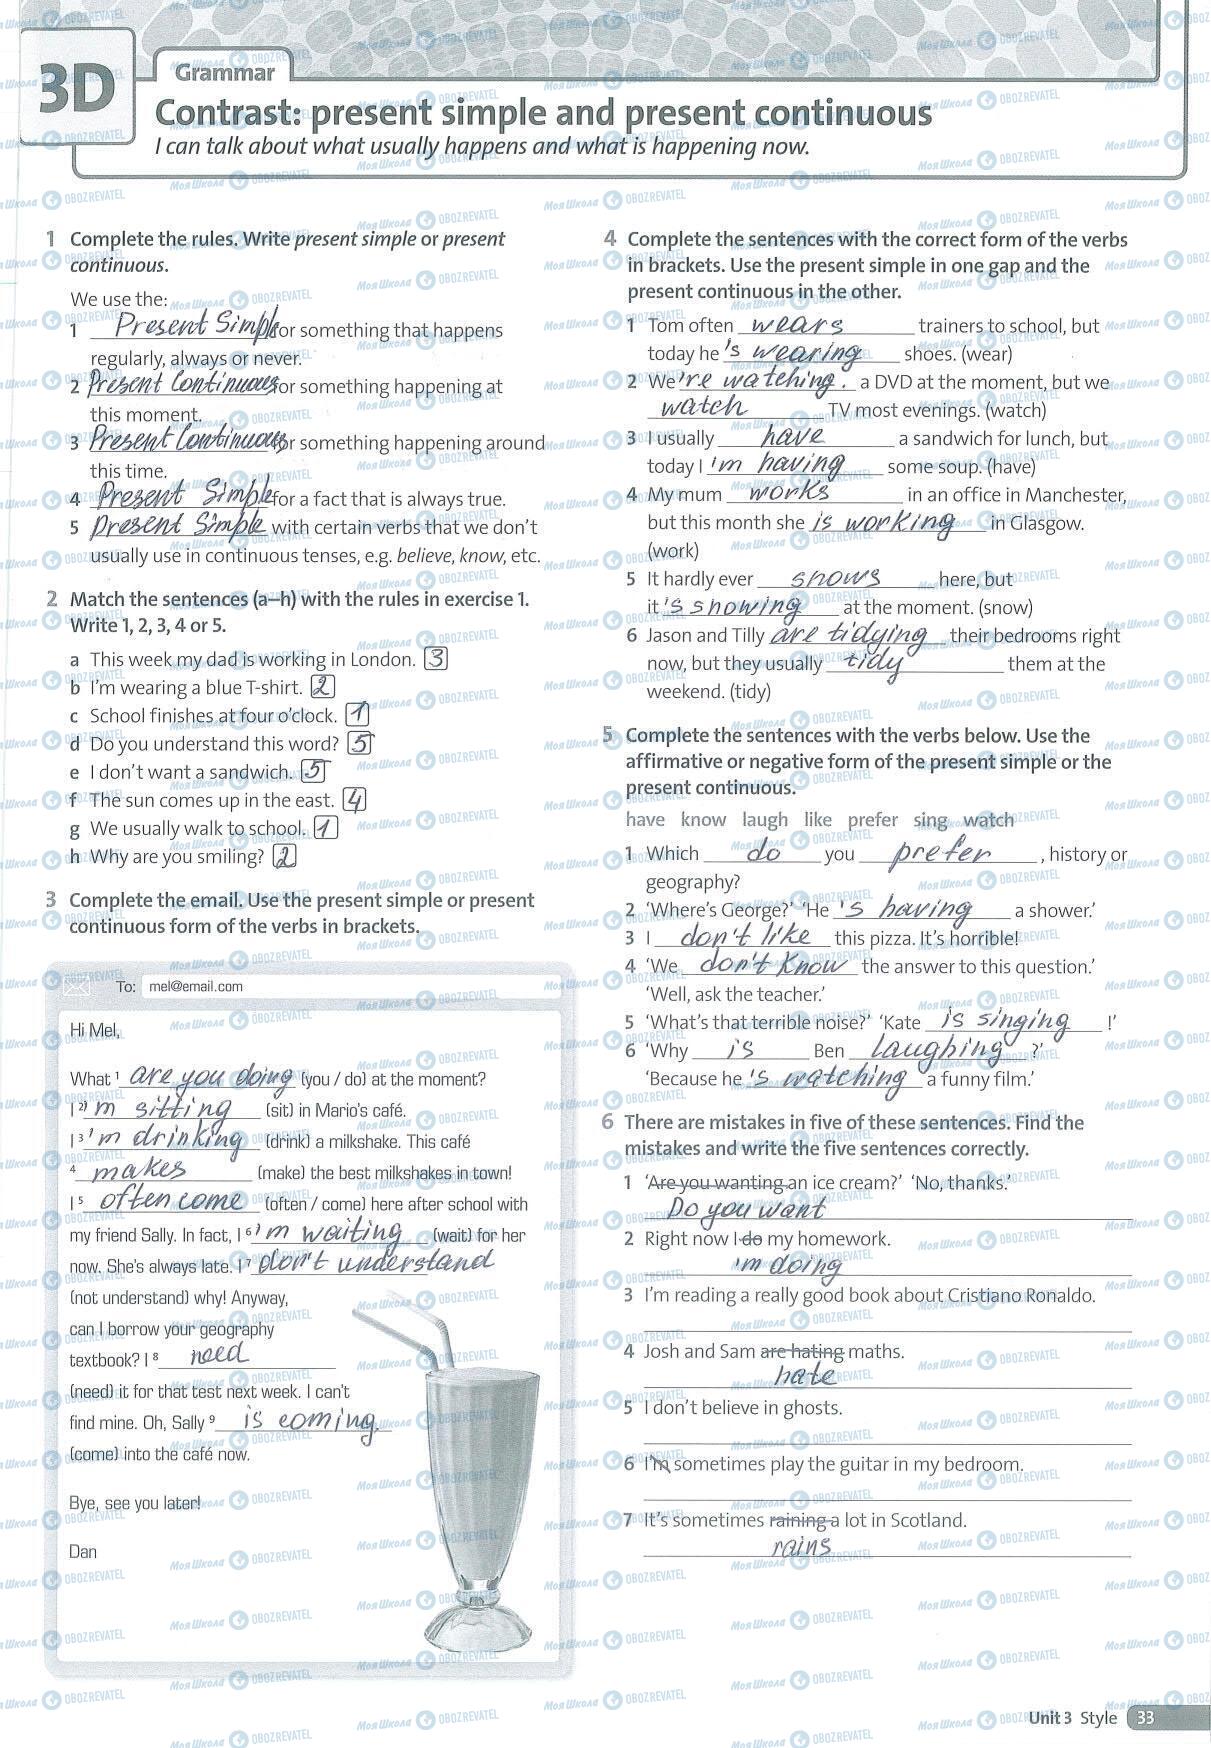 3D
Grammar
Contrast: present simple and present continuous
I can talk about what usually happens and what is happening now.
1 Complete the rules. Write present simple or present
continuous.
We use the:
1 Present Simple for something that happens
regularly, always or never.
2 Present Continuous for something happening at
this moment.
3 Present Continuous for something happening around
this time.
4 Present Simple for a fact that is always true.
5 Present Simple with certain verbs that we don't
usually use in continuous tenses, e.g. believe, know, etc.
2 Match the sentences (a–h) with the rules in exercise 1.
Write 1, 2, 3, 4 or 5.
a This week my dad is working in London. 3
b I'm wearing a blue T-shirt. 2
c School finishes at four o'clock. 1
d Do you understand this word? 5
e I don't want a sandwich. 5
f The sun comes up in the east. 4
g We usually walk to school. 1
h Why are you smiling? 2
3 Complete the email. Use the present simple or present
continuous form of the verbs in brackets.
To: mel@email.com
Hi Mel,
What 1 are you doing (you / do) at the moment?
I 2 'm sitting (sit) in Mario's café.
I 3 'm drinking (drink) a milkshake. This café
4 makes (make) the best milkshakes in town!
I 5 often come (often / come) here after school with
my friend Sally. In fact, I 6 'm waiting (wait) for her
now. She's always late. I 7 don't understand
(not understand) why! Anyway,
can I borrow your geography
textbook? I 8 need
(need) it for that test next week. I can't
find mine. Oh, Sally 9 is coming.
(come) into the café now.
Bye, see you later!
Dan
4 Complete the sentences with the correct form of the verbs
in brackets. Use the present simple in one gap and the
present continuous in the other.
1 Tom often wears trainers to school, but
today he 's wearing shoes. (wear)
2 We 're watching. a DVD at the moment, but we
watch TV most evenings. (watch)
3 I usually have a sandwich for lunch, but
today I 'm having some soup. (have)
4 My mum works in an office in Manchester,
but this month she is working in Glasgow.
(work)
5 It hardly ever snows here, but
it 's snowing at the moment. (snow)
6 Jason and Tilly are tidying their bedrooms right
now, but they usually tidy them at the
weekend. (tidy)
5 Complete the sentences with the verbs below. Use the
affirmative or negative form of the present simple or the
present continuous.
have know laugh like prefer sing watch
1 Which do you prefer, history or
geography?
2 'Where's George?' 'He 's having a shower.'
3 I don't like this pizza. It's horrible!
4 'We don't know the answer to this question.'
'Well, ask the teacher.'
5 'What's that terrible noise?' 'Kate is singing !'
6 'Why is Ben laughing ?'
'Because he 's watching a funny film.'
6 There are mistakes in five of these sentences. Find the
mistakes and write the five sentences correctly.
1 'Are you wanting an ice cream?' 'No, thanks.'
Do you want
2 Right now I do my homework.
'm doing
3 I'm reading a really good book about Cristiano Ronaldo.
4 Josh and Sam are hating maths.
hate
5 I don't believe in ghosts.
6 I'm sometimes play the guitar in my bedroom.
7 It's sometimes raining a lot in Scotland.
rains
Unit 3 Style 33
МояШкола OBOZREVATEL